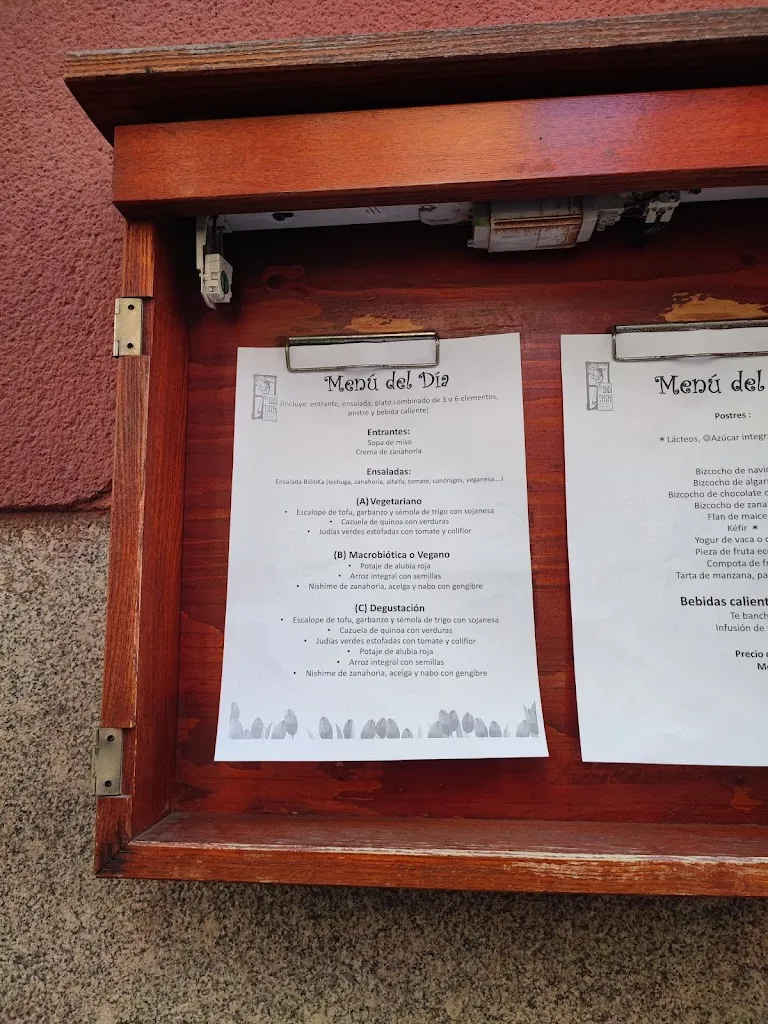 Menú del Día
(Incluye: entrante, ensalada, plato combinado de 3 o 6 elementos,
postre y bebida caliente)
Entrantes:
Sopa de miso
Crema de zanahoria
Ensaladas:
Ensalada BiótiKa (lechuga, zanahoria, alfalfa, tomate, canónigos, veganesa....)
(A) Vegetariano
• Escalope de tofu, garbanzo y sémola de trigo con sojanesa
• Cazuela de quinoa con verduras
• Judías verdes estofadas con tomate y coliflor
(B) Macrobiótica o Vegano
• Potaje de alubia roja
• Arroz integral con semillas
• Nishime de zanahoria, acelga y nabo con gengibre
(C) Degustación
• Escalope de tofu, garbanzo y sémola de trigo con sojanesa
• Cazuela de quinoa con verduras
• Judías verdes estofadas con tomate y coliflor
• Potaje de alubia roja
• Arroz integral con semillas
• Nishime de zanahoria, acelga y nabo con gengibre
Menú del
Postres :
✶ Lácteos, ☺Azúcar integr
Bizcocho de navi
Bizcocho de algar
Bizcocho de chocolate c
Bizcocho de zana
Flan de maice
Kéfir ✶
Yogur de vaca o
Pieza de fruta ec
Compota de fr
Tarta de manzana, pa
Bebidas calient
Te banch
Infusión de
Precio